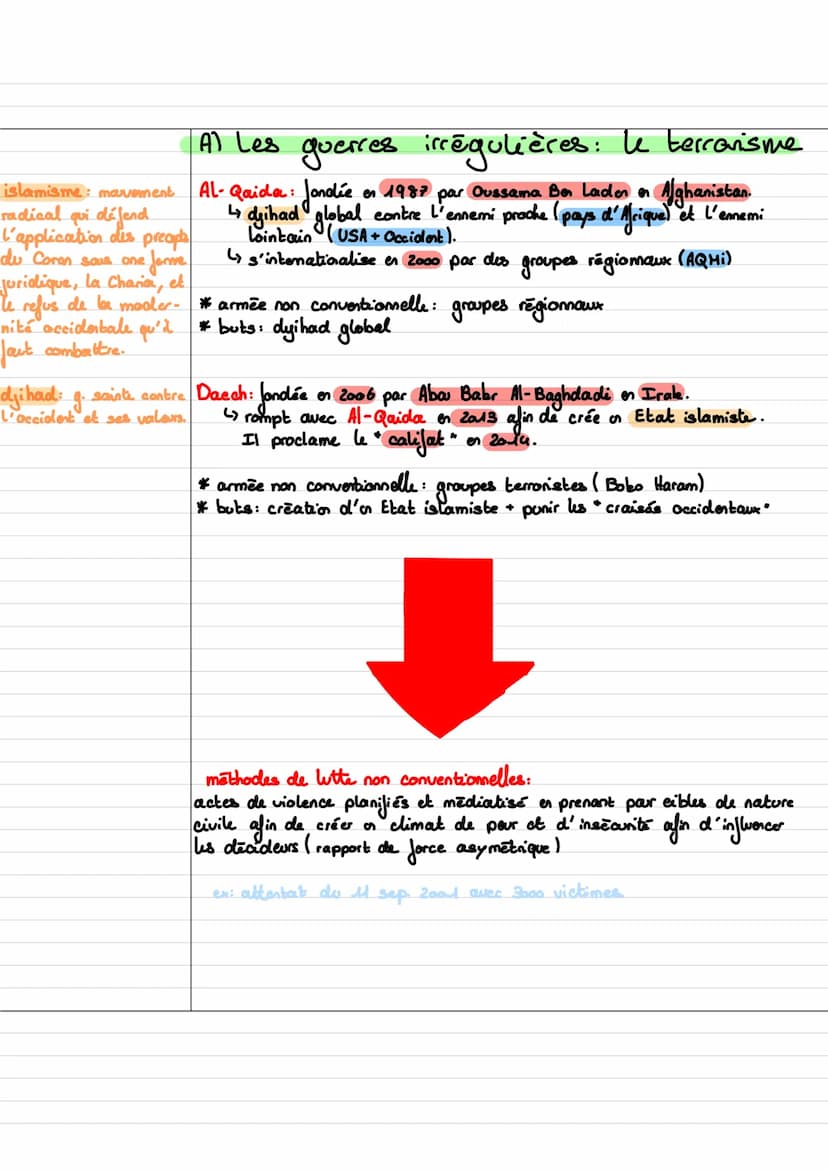 A) Les guerres irrégulières: le terrorisme
islamisme: mouvement
radical qui défend
l'application des precepts
du Coran sous une forme
juridique, la Charia, et
le refus de la moder-
nité occidentale qu'il
faut combattre.
djihad: g. sainte contre
l'occident et ses valeurs.
Al-Qaida: fondée en 1987 par Oussama Ben Laden en Afghanistan.
↳ djihad global contre l'ennemi proche (pays d'Afrique) et l'ennemi
lointain (USA + Occident).
↳ s'internationalise en 2000 par des groupes régionnaux (AQMi)
* armée non conventionnelle: groupes régionnaux
* buts: djihad global
Daech: fondée en 2006 par Abou Bakr Al-Baghdadi en Irak.
↳ rompt avec Al-Qaida en 2013 afin de crée un Etat islamiste.
Il proclame le "califat" en 2014.
* armée non conventionnelle: groupes terroristes (Boko Haram)
* buts: création d'un Etat islamiste + punir les "croisés occidentaux"
méthodes de lutte non conventionnelles:
actes de violence planifiés et médiatisé en prenant par cibles de nature
civile afin de créer un climat de peur et d'insécurité afin d'influencer
les décideurs (rapport de force asymétrique)
ex: attentat du 11 sep. 2001 avec 3000 victimes